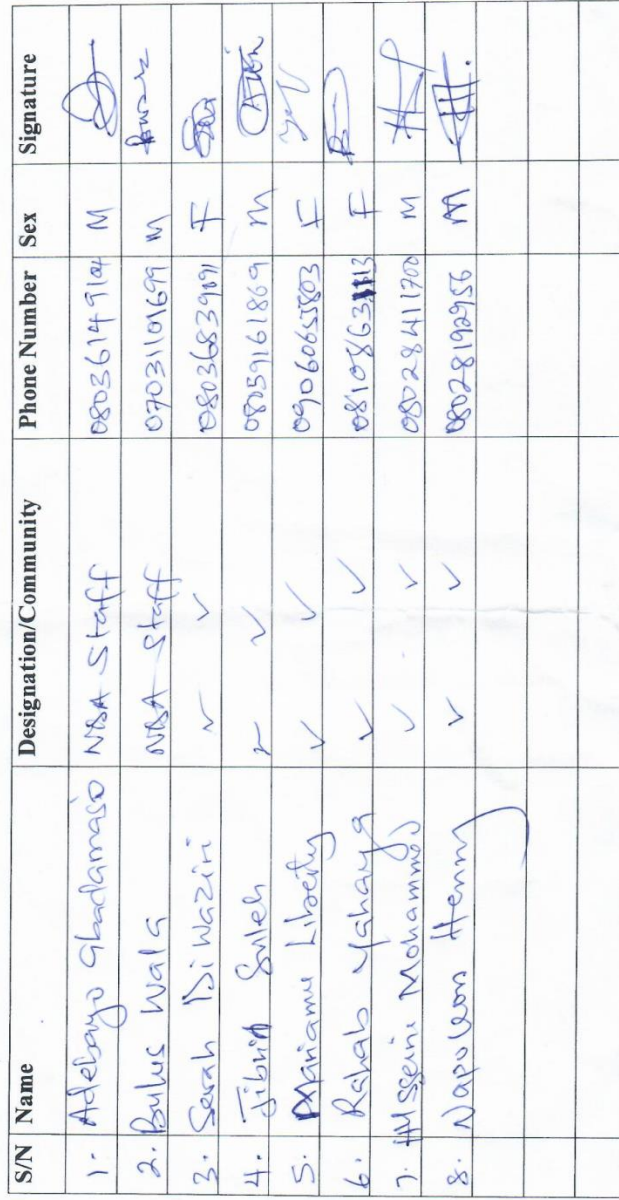 S/N Name Designation/Community Phone Number Sex Signature
1. Adebayo Gbadamasi NBA Staff 08036149104 M
2. Bulus Wala NBA Staff 07031101699 M
3. Sarah Diwaziri ✓ ✓ 08036839091 F
4. Jibrin Saleh ✓ ✓ 08059161869 M
5. Mariamu Liberty ✓ ✓ 09060655803 F
6. Rahab Yahaya ✓ ✓ F
7. Husseini Mohammed ✓ ✓ 08028411700 M
8. Napoleon Henry ✓ ✓ 08028192956 M